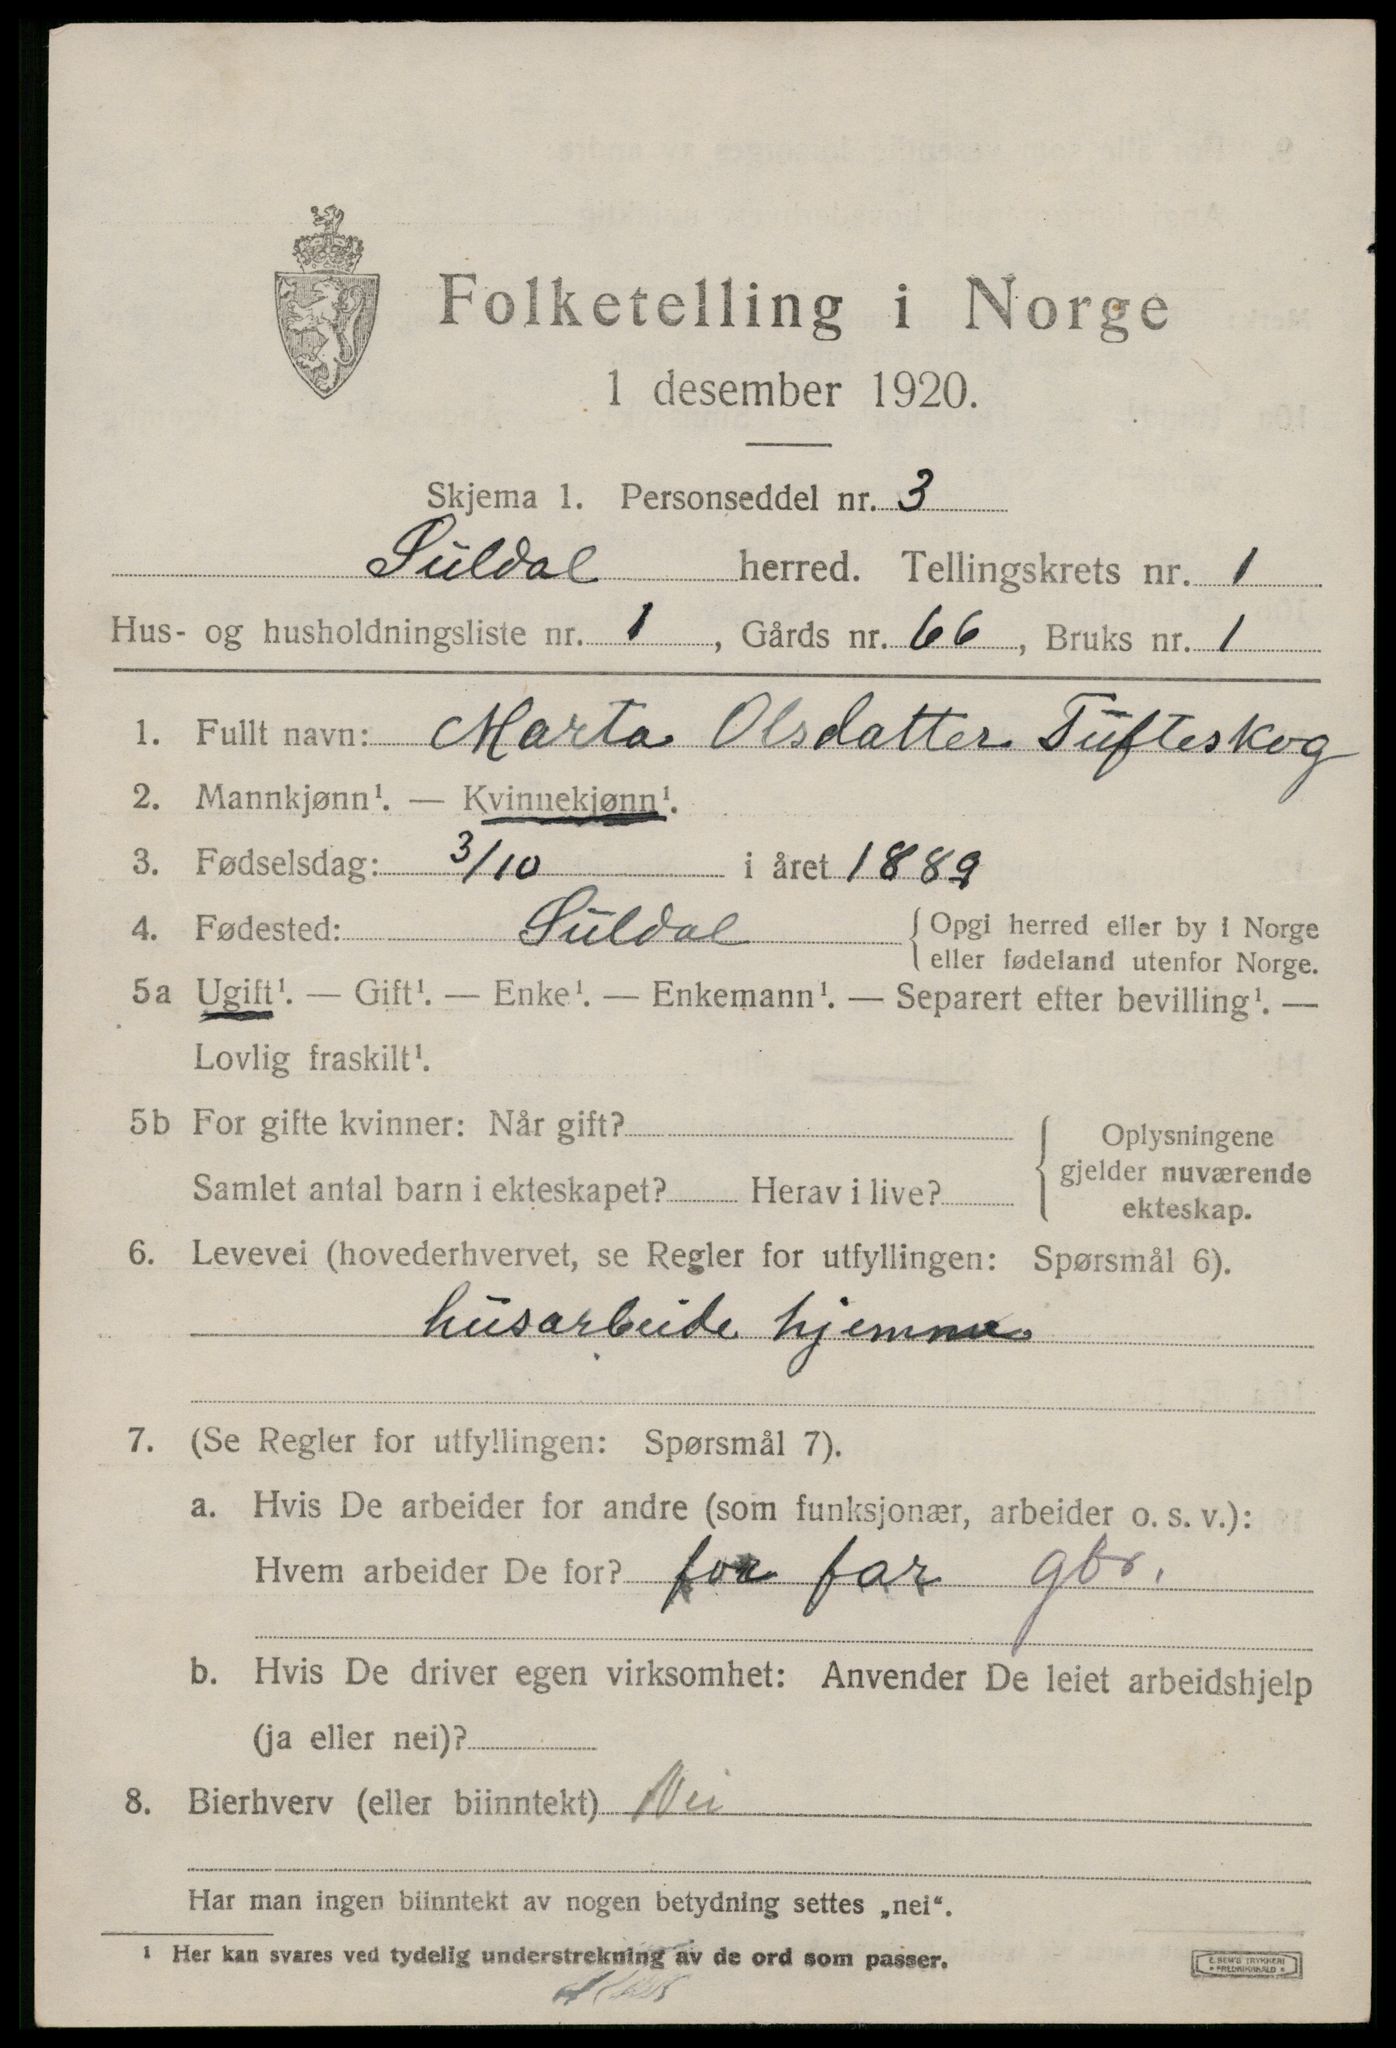 Folketelling i Norge
1 desember 1920.
Skjema 1. Personseddel nr. 3
Suldal herred. Tellingskrets nr. 1
Hus- og husholdningsliste nr. 1, Gårds nr. 66, Bruks nr. 1
1. Fullt navn: Marta Olsdatter Tufteskog
2. Mannkjønn¹. — Kvinnekjønn¹.
3. Fødselsdag: 3/10 i året 1889
4. Fødested: Suldal { Opgi herred eller by i Norge
eller fødeland utenfor Norge.
5a Ugift¹. — Gift¹. — Enke¹. — Enkemann¹. — Separert efter bevilling¹. —
Lovlig fraskilt¹.
5b For gifte kvinner: Når gift?
Samlet antal barn i ekteskapet? Herav i live?
{ Oplysningene
gjelder nuværende
ekteskap.
6. Levevei (hovederhvervet, se Regler for utfyllingen: Spørsmål 6).
husarbeide hjemme
7. (Se Regler for utfyllingen: Spørsmål 7).
a. Hvis De arbeider for andre (som funksjonær, arbeider o. s. v.):
Hvem arbeider De for? for far gbr.
b. Hvis De driver egen virksomhet: Anvender De leiet arbeidshjelp
(ja eller nei)?
8. Bierhverv (eller biinntekt) Nei
Har man ingen biinntekt av nogen betydning settes „nei“.
¹ Her kan svares ved tydelig understrekning av de ord som passer.
E. SEM'S TRYKKERI
FREDRIKSHALD